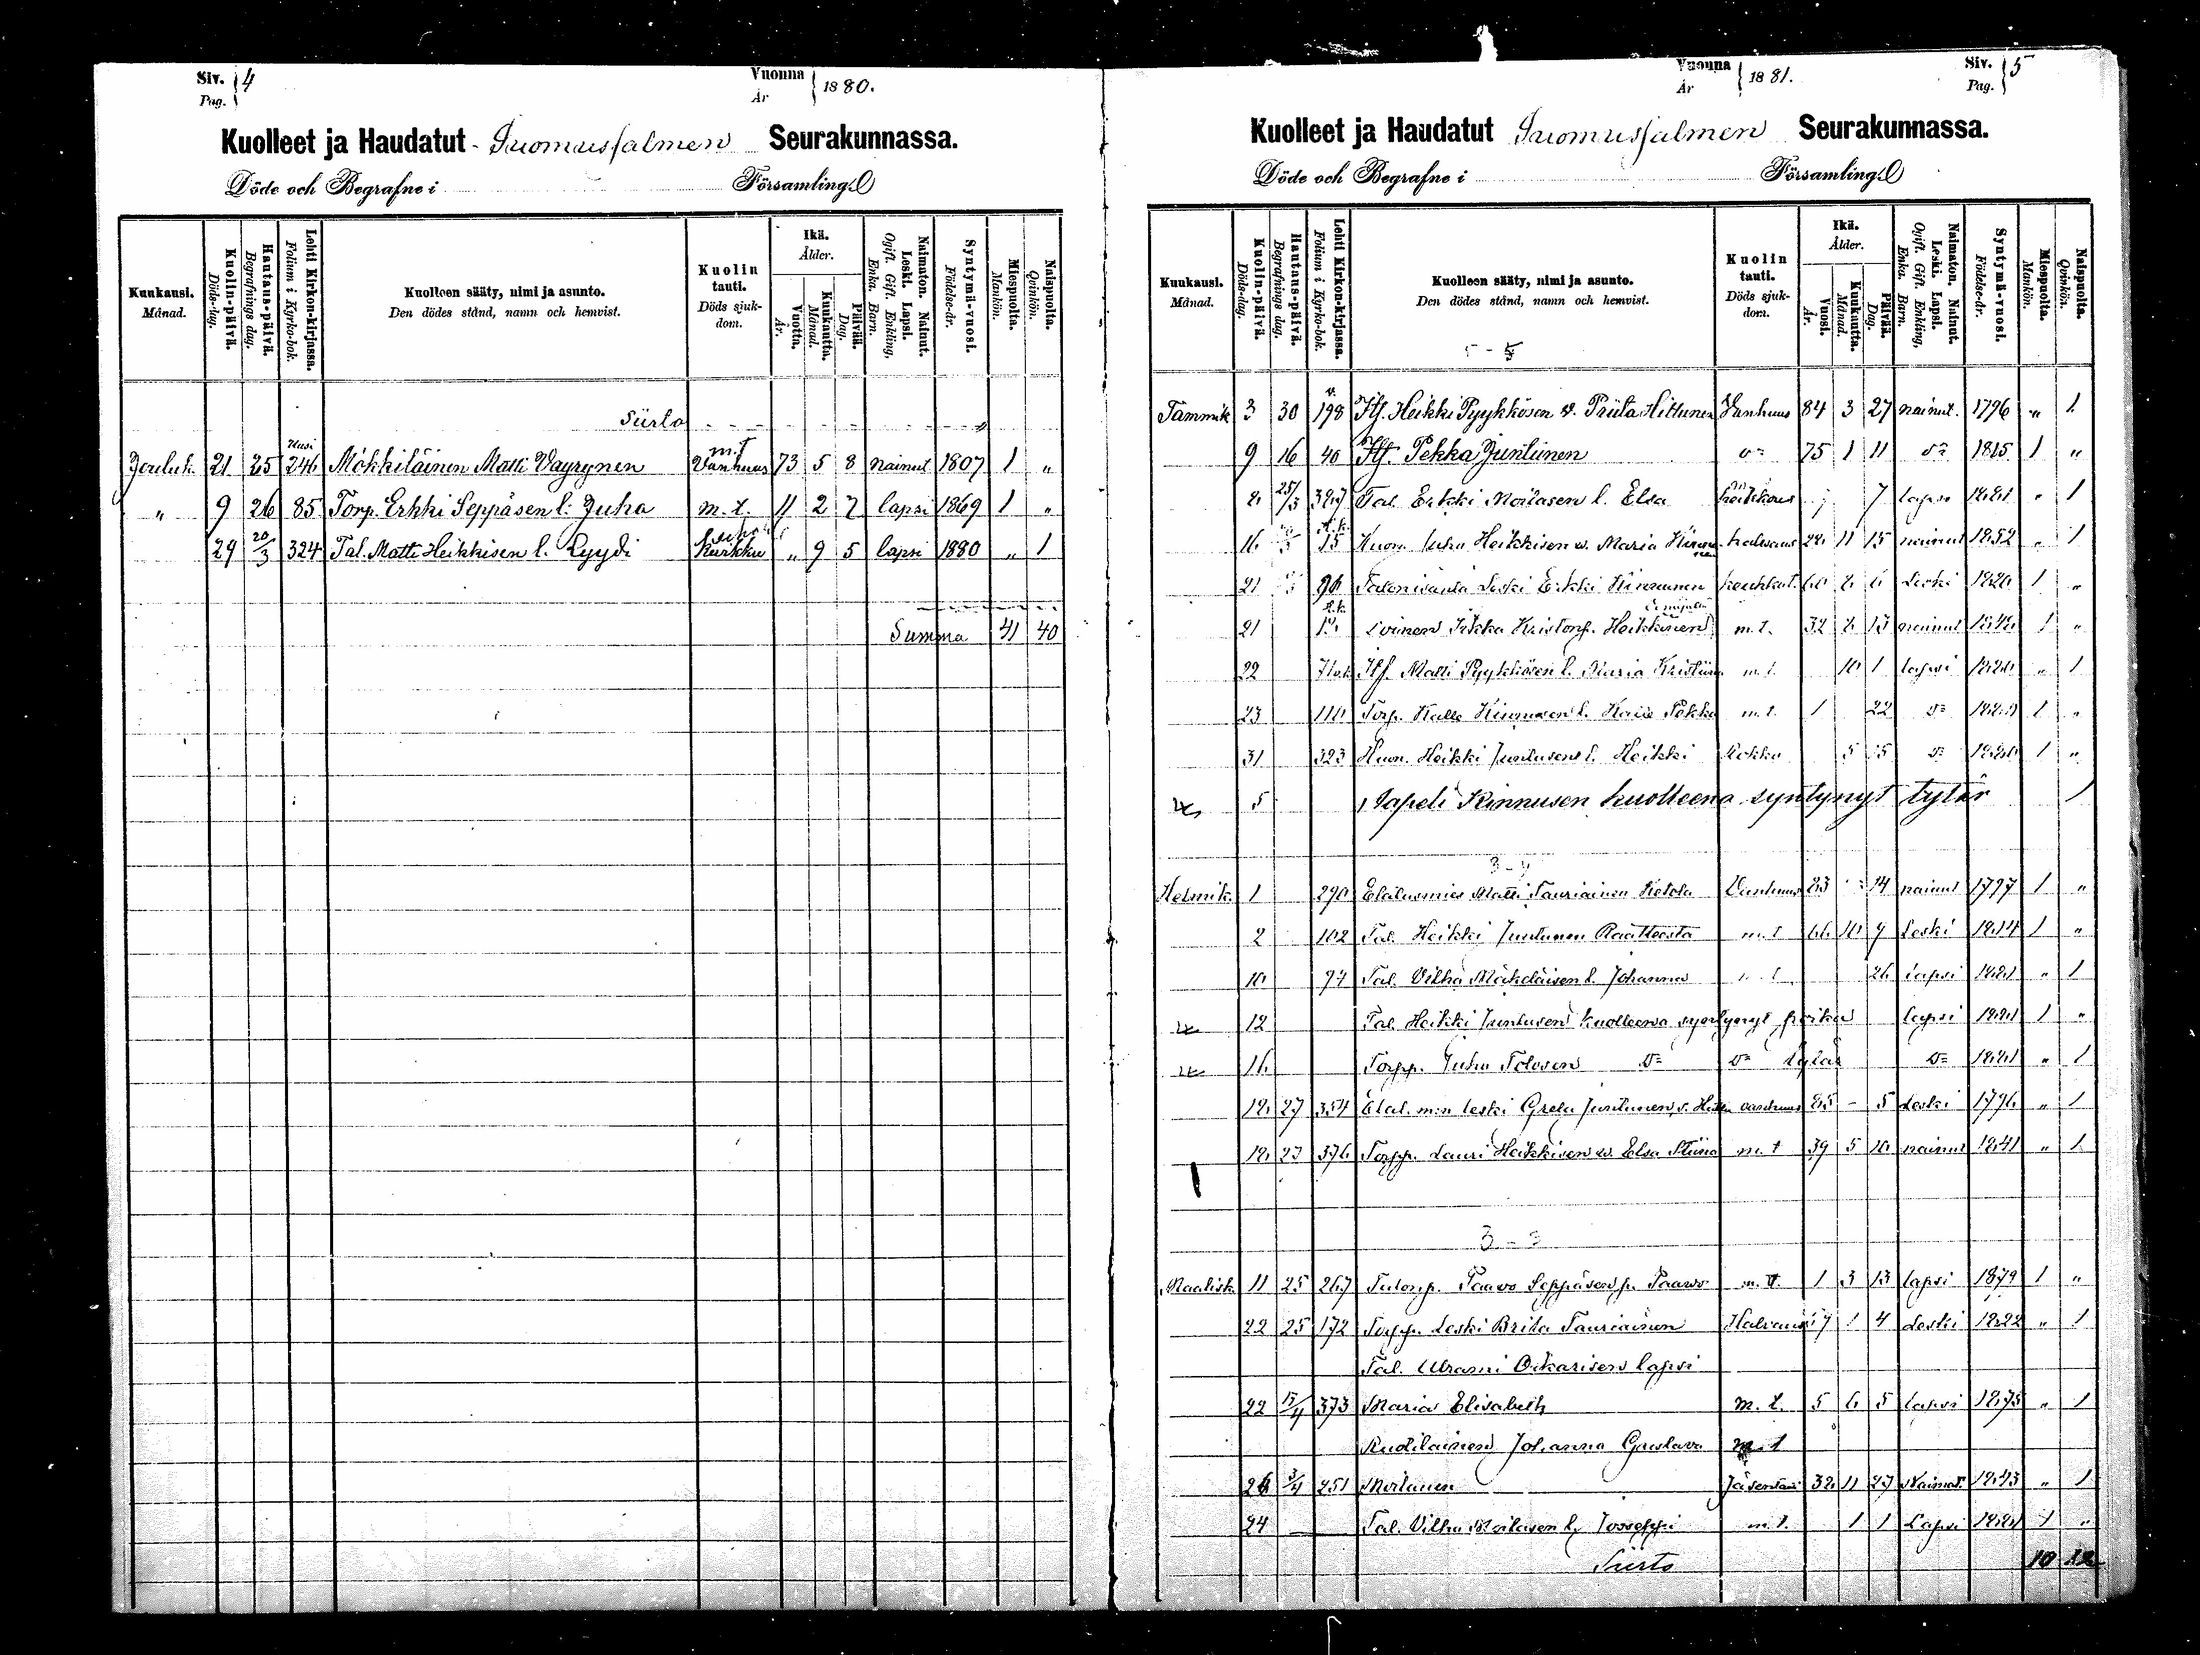 Siv. 4
Pag.
Vuonna 1880.
År
Kuolleet ja Haudatut Suomussalmen Seurakunnassa.
Döde och Begrafne i Församling.
Kuukausi. Månad.
Kuolin-päivä. Döds-dag.
Hautaus-päivä. Begrafnings dag.
Lehti Kirkon-kirjassa. Folium i Kyrko-bok.
Kuolleen sääty, nimi ja asunto.
Den dödes stånd, namn och hemvist.
Kuolin tauti. Döds sjukdom.
Ikä. Ålder.
Vuotta. År.
Kuukautta. Månad.
Päivää. Dag.
Naimaton. Nainut. Leski. Lapsi. Ogift. Gift. Enkling, Enka. Barn.
Syntymä-vuosi. Födelse-år.
Miespuolta. Mankön.
Naispuolta. Qvinkön.
Siirto
Jouluk. 21 25 Uusi 246 Mökkiläinen Matti Väyrynen m.t. Vanhuus 73 5 8 nainut 1807 1 "
" 9 26 85 Torp. Erkki Seppäsen l. Juha m. t. 11 2 7 lapsi 1869 1 "
29 20/3 324 Tal. Matti Heikkisen l. Lyydi kurkku " 9 5 lapsi 1880 " 1
Summa 41 40
Vuonna 1881.
År
Siv. 5
Pag.
Kuolleet ja Haudatut Suomussalmen Seurakunnassa.
Döde och Begrafne i Församling.
Kuukausi. Månad.
Kuolin-päivä. Döds-dag.
Hautaus-päivä. Begrafnings dag.
Lehti Kirkon-kirjassa. Folium i Kyrko-bok.
Kuolleen sääty, nimi ja asunto.
Den dödes stånd, namn och hemvist.
Kuolin tauti. Döds sjukdom.
Ikä. Ålder.
Vuosi. År.
Kuukautta. Månad.
Päivää. Dag.
Naimaton. Nainut. Leski. Lapsi. Ogift. Gift. Enkling, Enka. Barn.
Syntymä-vuosi. Födelse-år.
Miespuolta. Mankön.
Naispuolta. Qvinkön.
Tammik 3 30 198 Itf. Heikki Pyykkösen v. Priita Hiltunen Vanhuus 84 3 27 nainut. 1796 " 1
9 16 40 Itf. Pekka Juntunen 75 1 11 1815 1 "
8 25/3 Tal. Erkki Moilasen l. Elsa 7 lapsi 1881 " 1
16 15 Huon. Juho Heikkisen v. Maria halvaus 28 11 15 nainut 1852 " 1
21 96 Leski Erkki Kinnunen keuhkot. 60 8 6 Leski 1820 1 "
21 Loinen Pekka Heikkinen m.t. 32 8 13 nainut 1848 1 "
22 Itf. Matti Pyykkösen l. Maria Kristiina m.t. 10 1 lapsi 1880 " 1
23 Torp. Kalle Kinnusen l. Pekka m.t. 1 22 1 "
31 323 Huon. Heikki Juntusen l. Heikki Rokko 5 1880 1 "
5 Tapeli Kinnusen kuolleena syntynyt tytär 1
3 - 4
Helmik. 1 290 Elatusmies Matti Tauriainen Ketola Vanhuus 83 14 nainut 1797 1 "
2 102 Tal. Heikki Juntunen Raatteesta m.t 66 10 9 Leski 1814 1 "
10 97 Tal. Vilho Mäkeläisen l. Johanna 26 lapsi 1881 " 1
12 Tal. Heikki Juntusen kuolleena syntynyt poika lapsi 1881 1 "
16 Torpp. Juho Tolosen tytär 1881 " 1
18 27 354 Elat. m:n leski Greta Juntunen vanhuus 85 - 5 Leski 1796 " 1
18 27 376 Torpp. Lauri Heikkisen v. Elsa Stiina m. t 39 5 10 nainut 1841 " 1
3 - 3
Maalisk. 11 25 267 Talonp. Paavo Seppäsen p. Paavo m. t. 1 3 13 lapsi 1879 1 "
22 25 172 Torpp. Leski Brita Tauriainen Halvaus 1 4 Leski 1822 " 1
Tal. Oikarisen lapsi
22 13/4 373 Maria Elisabeth m. t. 5 6 5 lapsi 1875 " 1
Johanna Gustava m. t
26 3/4 251 Moilanen 32 11 27 Naimat. 1843 " 1
24 Tal. Vilho Moilasen l. Jooseppi m.t. 1 1 Lapsi 1881 1 "
Siirto 10 12